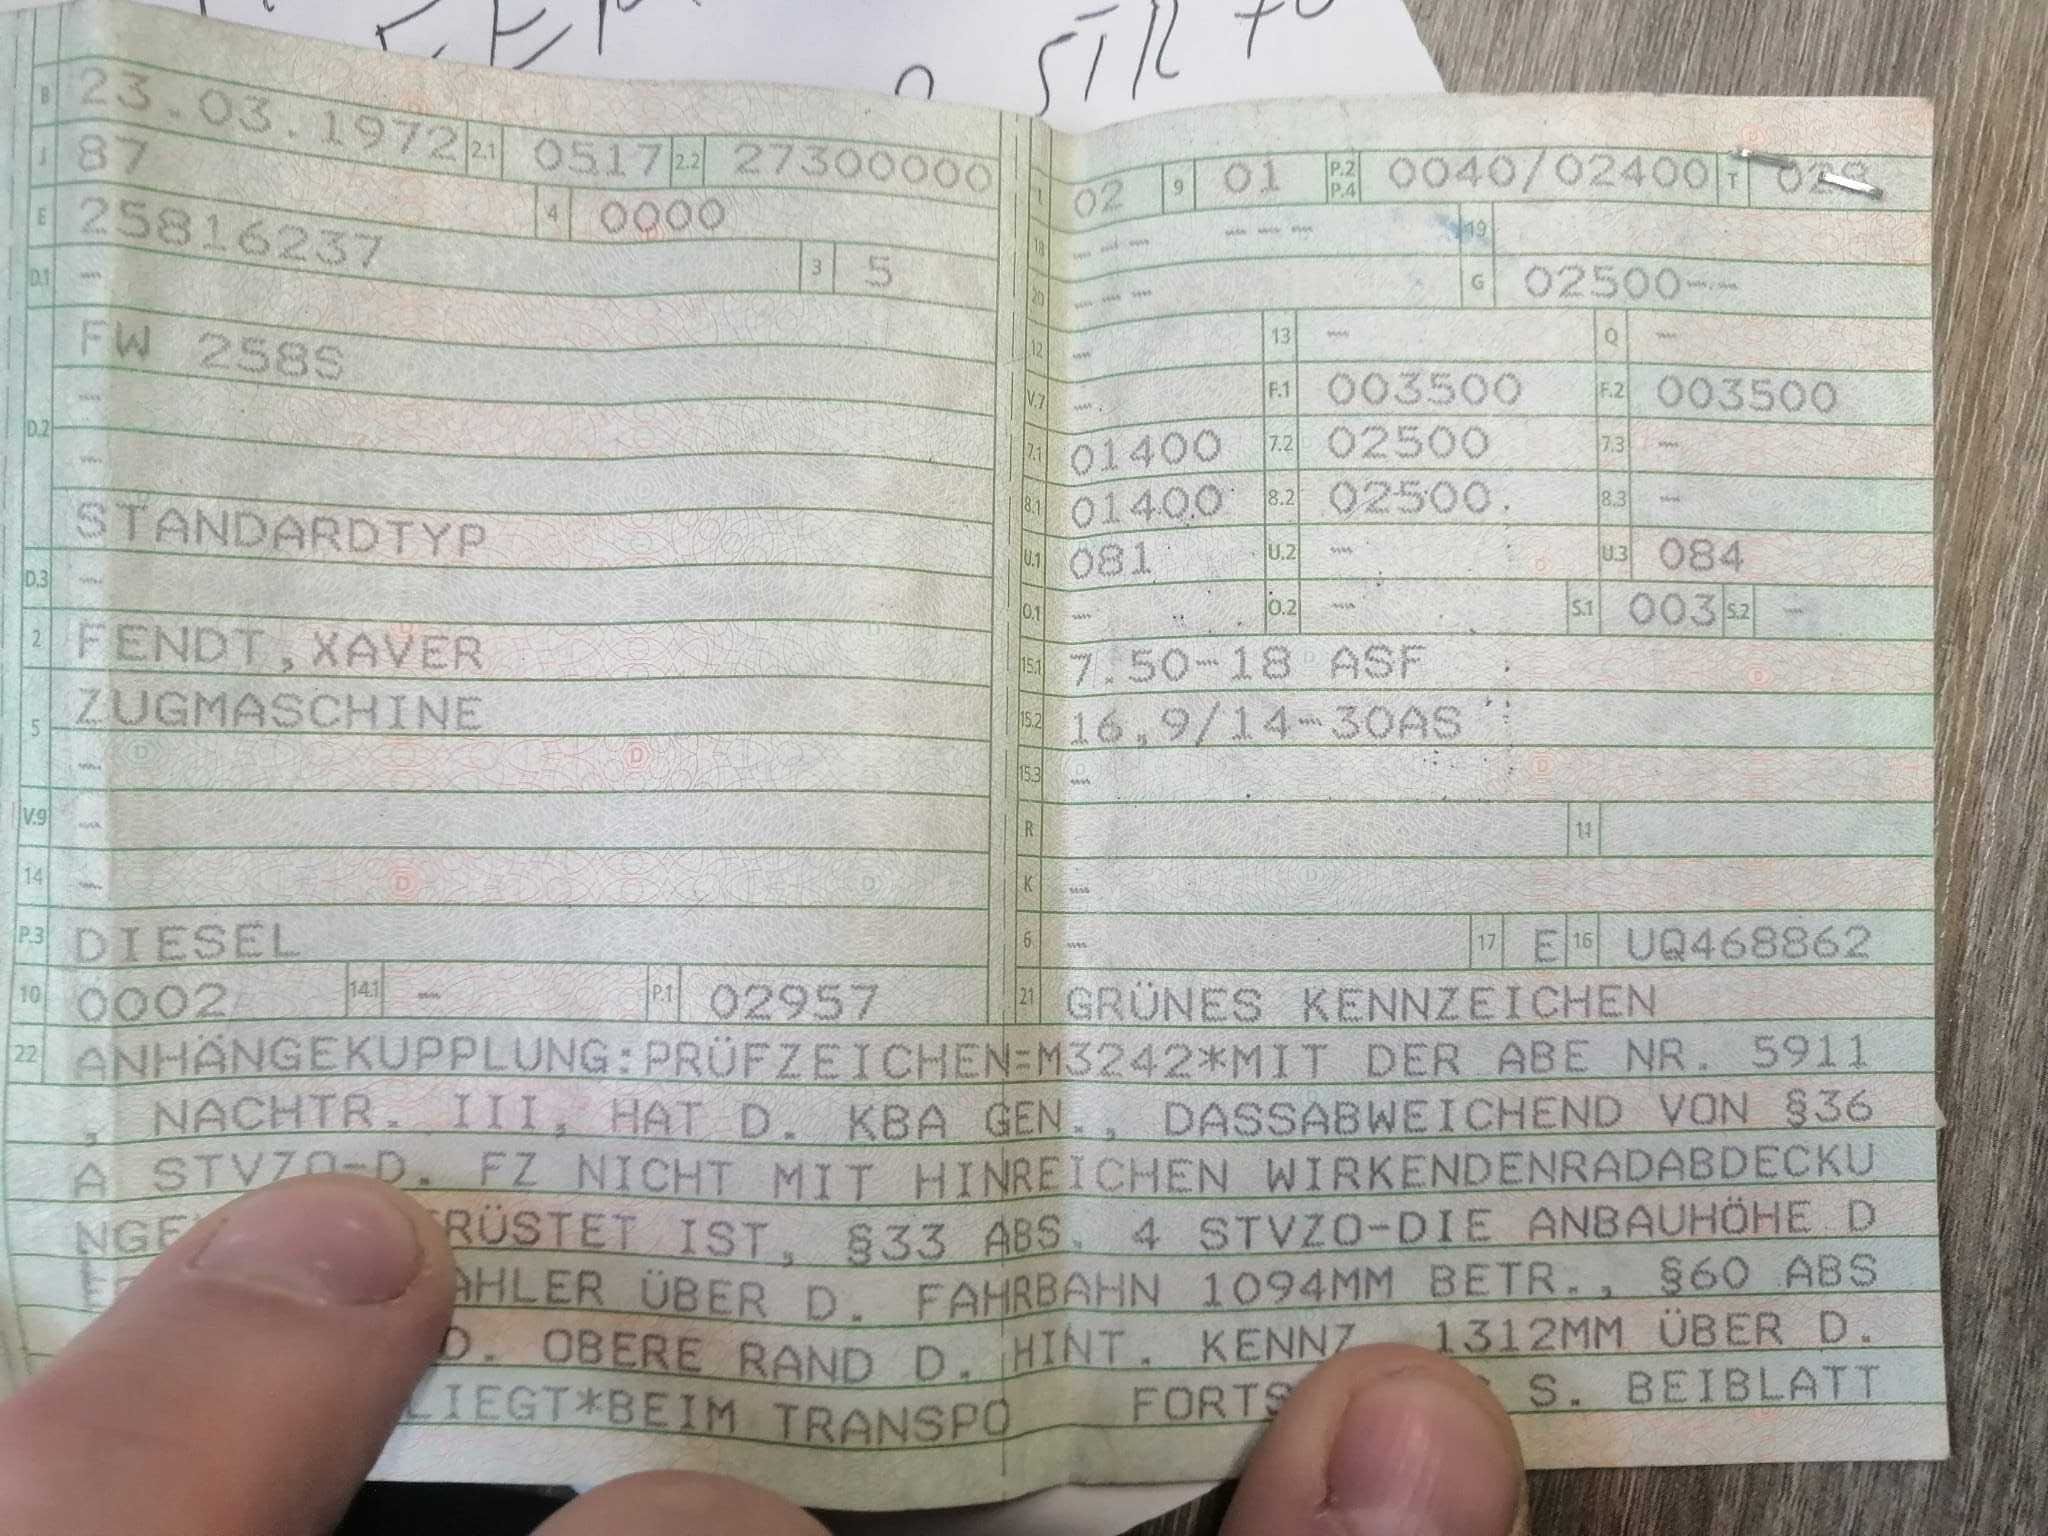 STR 70
B 23.03.1972 2.1 0517 2.2 27300000
J 87 4 0000
E 25816237 3 5
D.1 —
FW 258S
D.2 —
—
STANDARDTYP
D.3 —
2 FENDT,XAVER
5 ZUGMASCHINE
—
V.9 —
14 —
P.3 DIESEL
10 0002 14.1 — P.1 02957
L 02 9 01 P.2 P.4 0040/02400 T
18 — — 19
20 — G 02500--
12 — 13 — Q —
V.7 — F.1 003500 F.2 003500
7.1 01400 7.2 02500 7.3 —
8.1 01400 8.2 02500 8.3 —
U.1 081 U.2 — U.3 084
O.1 — O.2 — S.1 003 S.2 —
15.1 7.50-18 ASF
15.2 16,9/14-30AS
15.3 —
R 11
K —
6 — 17 E 16 UQ468862
21 GRÜNES KENNZEICHEN
22 ANHÄNGEKUPPLUNG:PRÜFZEICHEN=M3242*MIT DER ABE NR. 5911
, NACHTR. III, HAT D. KBA GEN., DASSABWEICHEND VON §36
A STVZO-D. FZ NICHT MIT HINREICHEN WIRKENDENRADABDECKU
NGE RÜSTET IST, §33 ABS. 4 STVZO-DIE ANBAUHÖHE D
AHLER ÜBER D. FAHRBAHN 1094MM BETR., §60 ABS
D. OBERE RAND D. HINT. KENNZ. 1312MM ÜBER D.
LIEGT*BEIM TRANSPO FORTS S. BEIBLATT